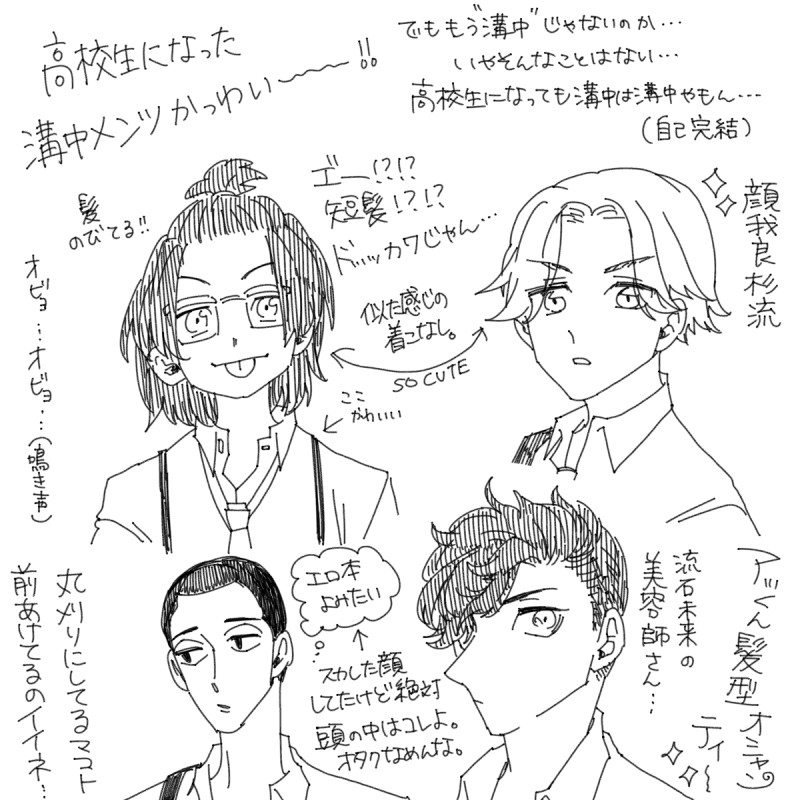 高校生になった
溝中メンツかっわいー〜〜!!
でももう"溝中"じゃないのか…
いやそんなことはない…
高校生になっても溝中は溝中やもん…
(自己完結)
髪
のびてる!!
オビョ…オビョ…(鳴き声)
エー!?!?
短髪!?!?
ドッッカワじゃん…
顔我良杉流
似た感じの
着こなし。
SO CUTE
ここ
かわいい
丸メリにしてるマコト
前あけてるのイイネ…
エロ本
よみたい
スカした顔
してたけど絶対
頭の中はコレよ。
オタクなめんな。
アッくん髪型オシャ
ティ〜
流石未来の
美容師さん…